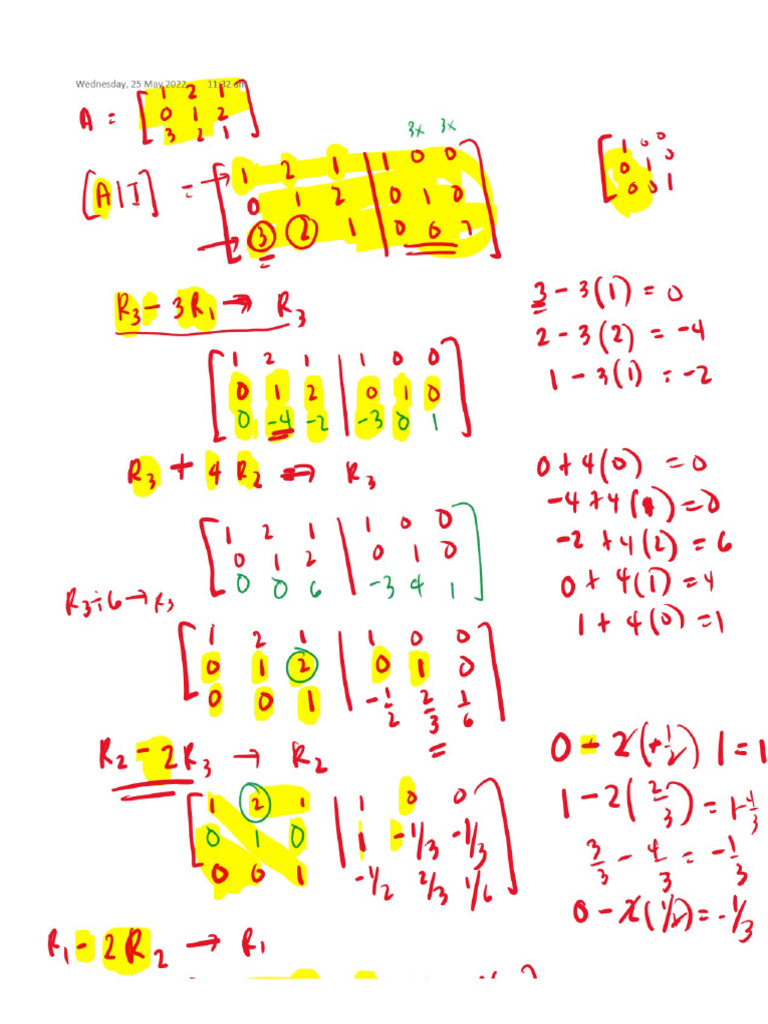 Wednesday, 25 May 2022 11:32 am
A = [ 1 2 1
0 1 2
3 2 1 ]
3x 3x
[A|I] = [ 1 2 1 | 1 0 0
0 1 2 | 0 1 0
3 2 1 | 0 0 1 ]
[ 1 0 0
0 1 0
0 0 1 ]
R3 - 3R1 → R3
3 - 3(1) = 0
2 - 3(2) = -4
1 - 3(1) = -2
[ 1 2 1 | 1 0 0
0 1 2 | 0 1 0
0 -4 -2 | -3 0 1 ]
R3 + 4R2 → R3
0 + 4(0) = 0
-4 + 4(1) = 0
-2 + 4(2) = 6
0 + 4(1) = 4
1 + 4(0) = 1
[ 1 2 1 | 1 0 0
0 1 2 | 0 1 0
0 0 6 | -3 4 1 ]
R3 ÷ 6 → R3
[ 1 2 1 | 1 0 0
0 1 2 | 0 1 0
0 0 1 | -1/2 2/3 1/6 ]
R2 - 2R3 → R2
0 - 2(+1/2) 1 = 1
1 - 2(2/3) = 1 - 4/3
3/3 - 4/3 = -1/3
0 - 2(1/6) = -1/3
[ 1 2 1 | 1 0 0
0 1 0 | 1 -1/3 -1/3
0 0 1 | -1/2 2/3 1/6 ]
R1 - 2R2 → R1